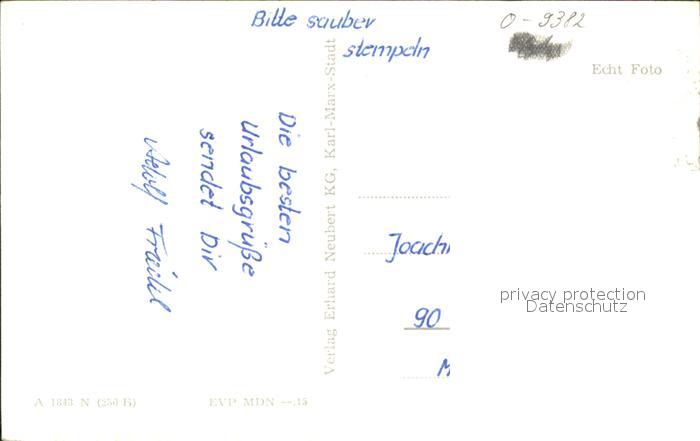 Bitte sauber
stempeln
O-9382
Echt Foto
Die besten
Urlaubsgrüße
sendet Dir
Adolf
Verlag Erhard Neubert KG, Karl-Marx-Stadt
Joachi
90
M
privacy protection
Datenschutz
A 1843 N (256 B)
EVP MDN —.15